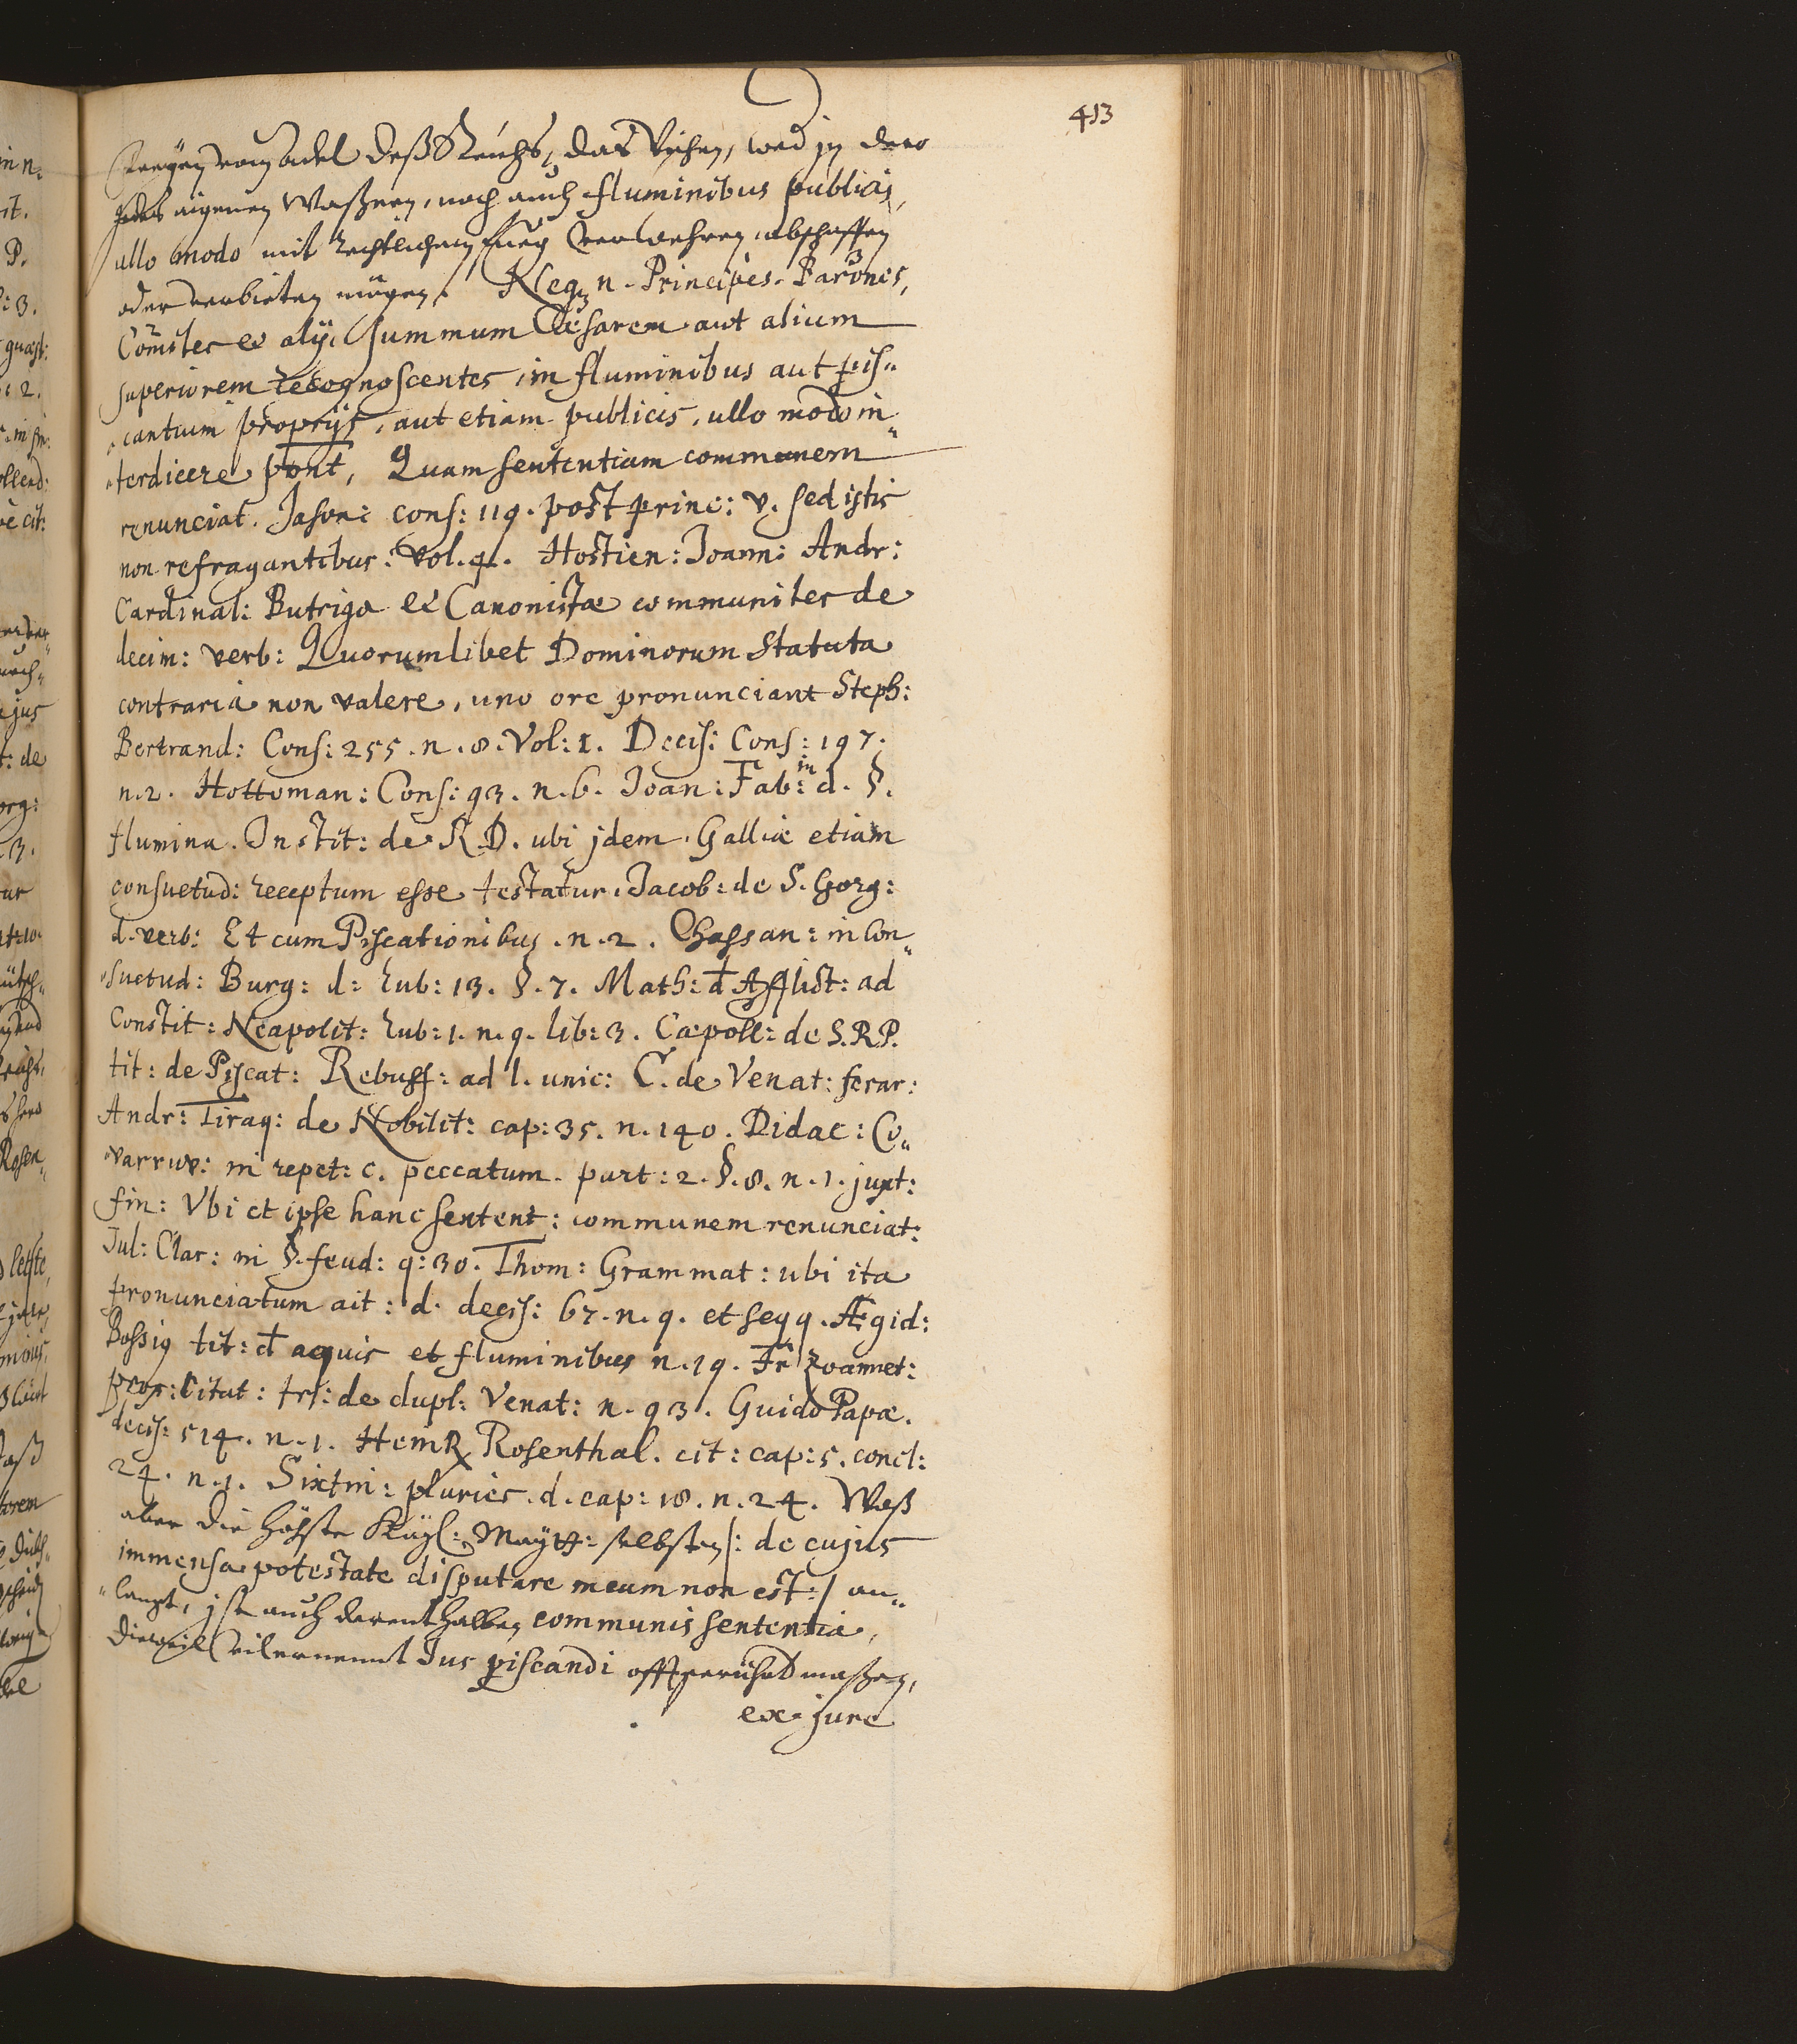 413
Freyen vom Adel deß Reichs, das Vischen, wed in dero
aigenen Waßern, noch auch fluminibus publicis,
ullo modo mit rechtlichem fueg verwehren, abschaffen
oder verbieten mögen. Neq n. Principes. Barones,
Comites et alij, summum Cæsarem aut alium
superiorem recognoscentes, in fluminibus aut pis„
„cantium proprijs, aut etiam publicis, ullo modo in„
„terdicere pont, Quam sententiam communem
renunciat. Jason: cons: 119. post princ: v. sed istis
non refragantibus: vol. 4. Hostien: Joann: Andr:
Cardinal: Butrigo et Canonistæ communiter de
decim: verb: Quorumlibet Dominorum Statuta
contraria non valere, uno ore pronunciant Steph:
Bertrand: Cons: 255. n. 8. Vol: 1. Decis: Cons: 197.
n. 2. Hottoman: Cons: 93. n. 6. Joan: Fab: in d. §.
flumina. Instit: de R.D. ubi jdem Galliæ etiam
consuetud: receptum esse testatur. Jacob: de S. Gorg:
d. verb: Et cum Piscationibus. n. 2. Chassan: in Con„
„suetud: Burg: d: Rub: 13. §. 7. Math: d Afflict: ad
Constit: Neapolit: Rub: 1. n. 9. lib: 3. Cæpoll: de S.R.P.
tit: de Piscat: Rebuff: ad l. unic: C. de Venat: ferar:
Andr: Tiraq: de Nobilit: cap: 35. n. 140. Didac: Co„
„varruv: in repet: c. peccatum. part: 2. §. 8. n. 1. juxt:
fin: Vbi et ipse hanc sentent: communem renunciat:
Jul: Clar: in §. feud: q: 30. Thom: Grammat: ubi ita
pronunciatum ait: d. decis: 67. n. 9. et seqq. Ægid:
Bossig tit: d aquis et fluminibus n. 19. Fr Zoannet:
prox: Citat: trs: de dupl: Venat: n. 93. Guido Papæ.
decis: 514. n. 1. Heinr Rosenthal. cit: cap: 5. concl:
24. n. 1. Sixtin: pluries. d. cap: 18. n. 24. Waß
aber die höchste Kayl: Maytt: selbsten /: de cujus
immensa potestate disputare meum non est :/ an„
„langt, ist auch derenthalben communis sententia,
dieweil vilernennt Jus piscandi offtberüehrt maßen,
ex jure